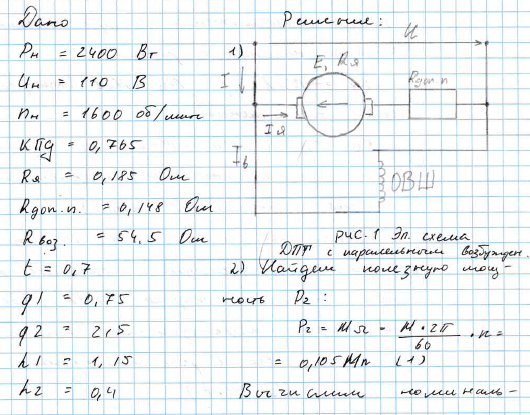 Дано
Pн = 2400 Вт
Uн = 110 В
nн = 1600 об/мин
КПД = 0,765
Rя = 0,185 Ом
Rдоп.п. = 0,148 Ом
Rвоз. = 54,5 Ом
t = 0,7
g1 = 0,75
g2 = 2,5
h1 = 1,15
h2 = 0,4
Решение:
1)
U
I
E, Rя
Rдоп.п
Iя
Iв
ОВШ
рис. 1 Эл. схема
ДПТ с параллельным возбужден.
2) Найдем полезную мощ-
ность P2:
P2 = MΩ = M·2π/60 · n =
= 0,105Mn (1)
Вычислим номиналь-